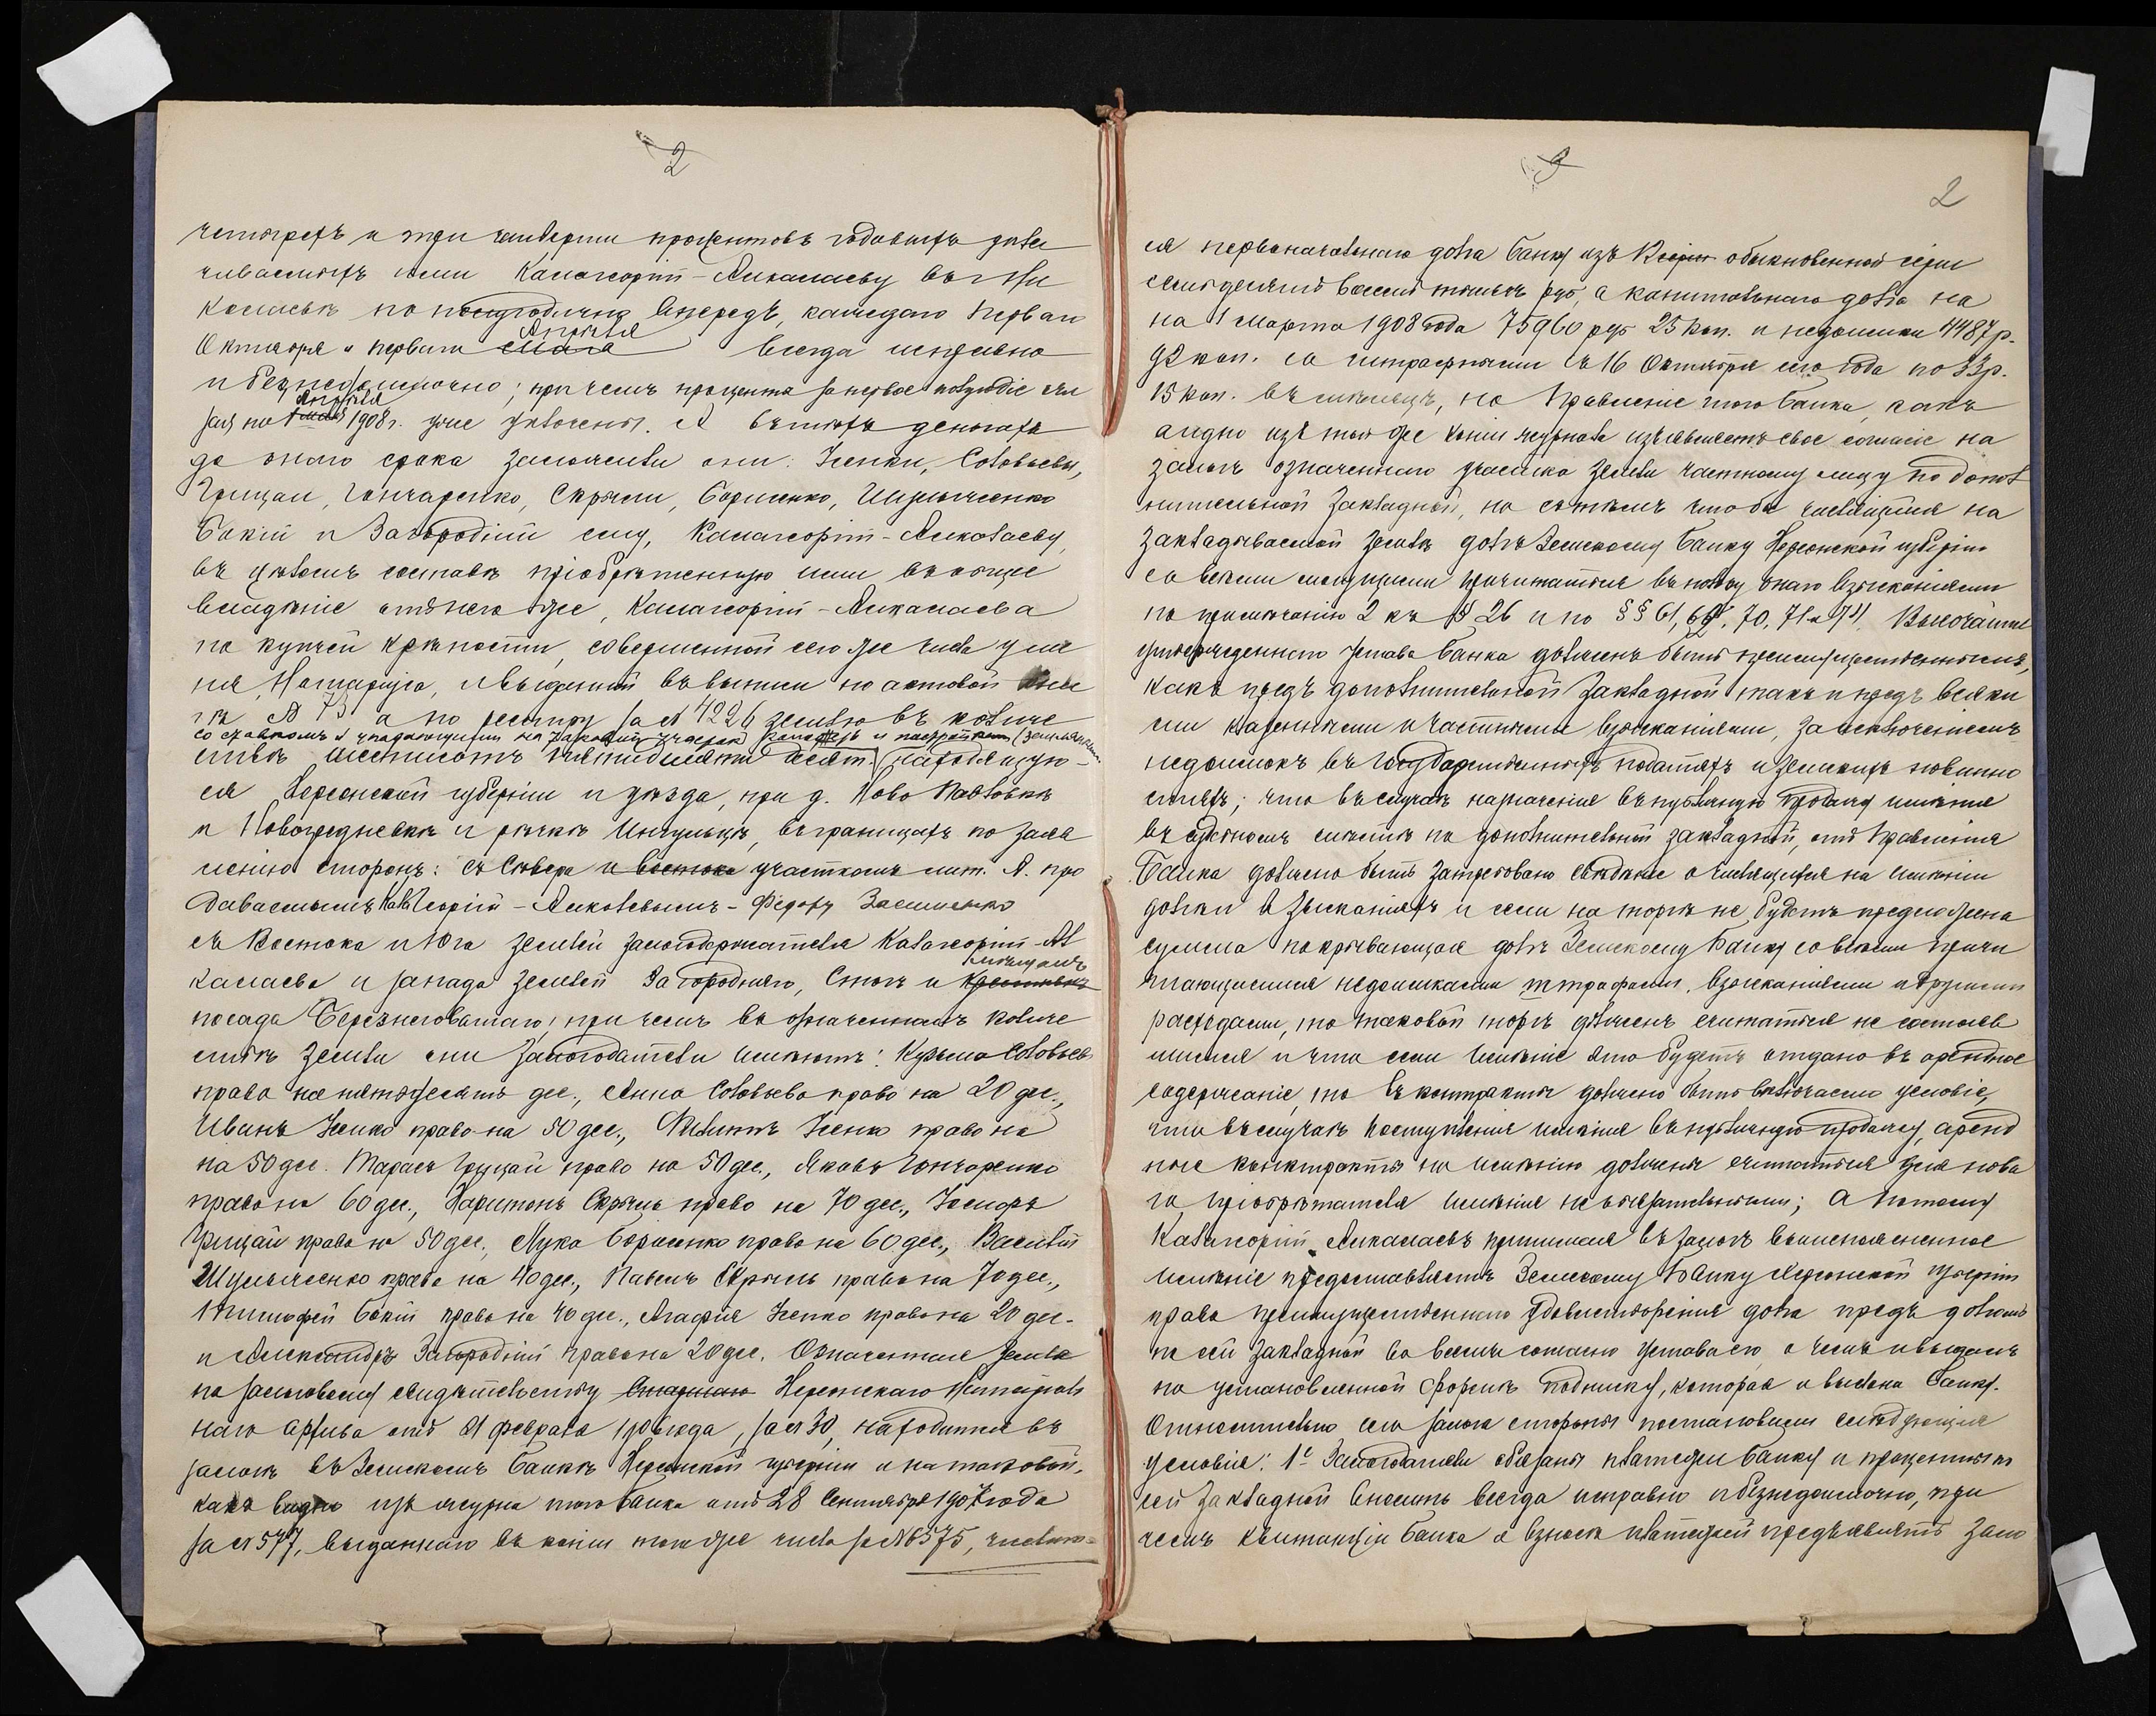 2
четырехъ и три четверти процентовъ годовыхъ упла
чиваемыхъ ими Калагеоргій-Алкалаеву въ г.
по полугодично впередъ, каждаго перваго
Апрѣля
Октября и перваго мая всегда исправно
и безнедоимочно; при чемъ проценты за первое полугодіе
Апрѣля
по 1 мая 1908 г. уже уплочены. А въ деньгахъ
до онаго срока заложили они: Ісенки, Соловьевы,
Грицаи, Гончаренко, Скрыли, Борисенко, Шульженко
Бакій и Загородній ему, Калагеоргій-Алкалаеву,
въ цѣломъ составѣ пріобрѣтенную ими въ общее
владѣніе отъ него же, Калагеоргій-Алкалаева
по купчей крѣпости, совершенной сего же числа у ме
ня, Нотаріуса, и выданной въ выписи по актовой кни
гѣ № 73 а по реестру за № 4226 землю въ количе
со
ствѣ шестисотъ десят. находящуюся
ся Херсонской губерніи и уѣзда, при д. Ново Павловкѣ
и Новогредневкѣ и рѣчкѣ Ингульцѣ, въ границахъ по заяв
ленію сторонъ: съ Сѣвера и востока участкомъ лит. А. про
даваемымъ Калагеоргій-Алкалаевымъ Федору Засименко
съ Востока и Юга землей залогодержателя Калагеоргій-Ал
мѣщанъ
калаева и запада землей Загородняго, Стогъ и крестьянъ
посада Березнеговатаго; при чемъ въ означенномъ количе
ствѣ земли они залогодатели имѣютъ: Кузьма Соловьевъ
право на пятьдесятъ дес., Анна Соловьева право на 20 дес.,
Иванъ Ісенко право на 50 дес., Филиппъ Ісенко право на
на 50 дес. Тарасъ Грицай право на 50 дес., Яковъ Гончаренко
право на 60 дес., Харитонъ Скрыль право на 70 дес., Іосифъ
Грицай право на 50 дес., Лука Борисенко право на 60 дес., Василій
Шульженко право на 40 дес., Павелъ Скрыль право на 70 дес.,
Тимофей Бакій право на 40 дес., Агафія Ісенко право на 20 дес.
и Александръ Загородній право на 20 дес. Означенная земля
по залоговому свидѣтельству Старшаго Херсонскаго Нотаріаль
наго Архива отъ 21 февраля 1906 года, за № 30, находится въ
залогѣ въ Земскомъ Банкѣ Херсонской губерніи и на таковой,
какъ видно изъ журнала того Банка отъ 28 Сентября 1907 года
за № 577, выданнаго въ копіи того же числа за № 6575, числит
2
ся первоначальнаго долга Банку изъ обыкновенной серіи
семьдесятъ восемь тысячъ руб, а капитальнаго долга на
на 1 Марта 1908 года 75960 руб 25 коп. и недоимки 4487 р.
92 коп. со штрафными съ 16 Октября сего года по 33 р.
15 коп. въ мѣсяцъ, но Правленіе того Банка, какъ
видно изъ той же копіи журнала изъявляетъ свое согласіе на
залогъ означеннаго участка земли частному лицу по допол
нительной закладной, но съ тѣмъ чтобы числящійся на
закладываемой землѣ долгъ Земскому Банку Херсонской губерніи
со всѣми могущими причитаться въ пользу онаго взысканіями
по примѣчанію 2 къ § 26 и по §§ 61, 62, 70, 71 и 74 Высочайше
утвержденнаго Устава Банка долженъ быть преимущественнымъ,
какъ предъ дополнительной закладной такъ и предъ всяки
ми казенными и частными взысканіями, за исключеніемъ
недоимокъ въ Государственныхъ податяхъ и земскихъ повинно
стяхъ; что въ случаѣ назначенія въ публичную продажу имѣнія
въ судебномъ мѣстѣ по дополнительной закладной, отъ Правленія
Банка должно быть затребовано свѣдѣніе о числящихся на имѣніи
долгѣ и взысканіяхъ и если на торгѣ не будетъ предложена
сумма покрывающая долгъ Земскому Банку со всѣми причи
тающимися недоимками штрафами, взысканіями и другими
расходами, то таковой торгъ долженъ считаться не состояв
шимся и что если имѣніе это будетъ отдано въ арендное
содержаніе, то въ контракты должно быть включаемо условіе,
что въ случаѣ поступленія имѣнія въ публичную продажу, аренд
ные контракты на имѣніе должны считаться для нова
го пріобрѣтателя имѣнія не обязательными; а потому
Калагеоргій Алкалаевъ принимая въ залогъ вышеозначенное
имѣніе предоставляетъ Земскому Банку Херсонской губерніи
право преимущественнаго удовлетворенія долга предъ долгомъ
по сей закладной во всемъ согласно Устава его, о чемъ и выдалъ
по установленной формѣ подписку, которая и выслана Банку.
Относительно сего залога стороны постановили слѣдующія
условія: 1е Залогодатели обязаны платежи Банку и проценты по
сей закладной вносить всегда исправно и безнедоимочно, при
чемъ квитанціи Банка о взносѣ платежей предъявлять зало